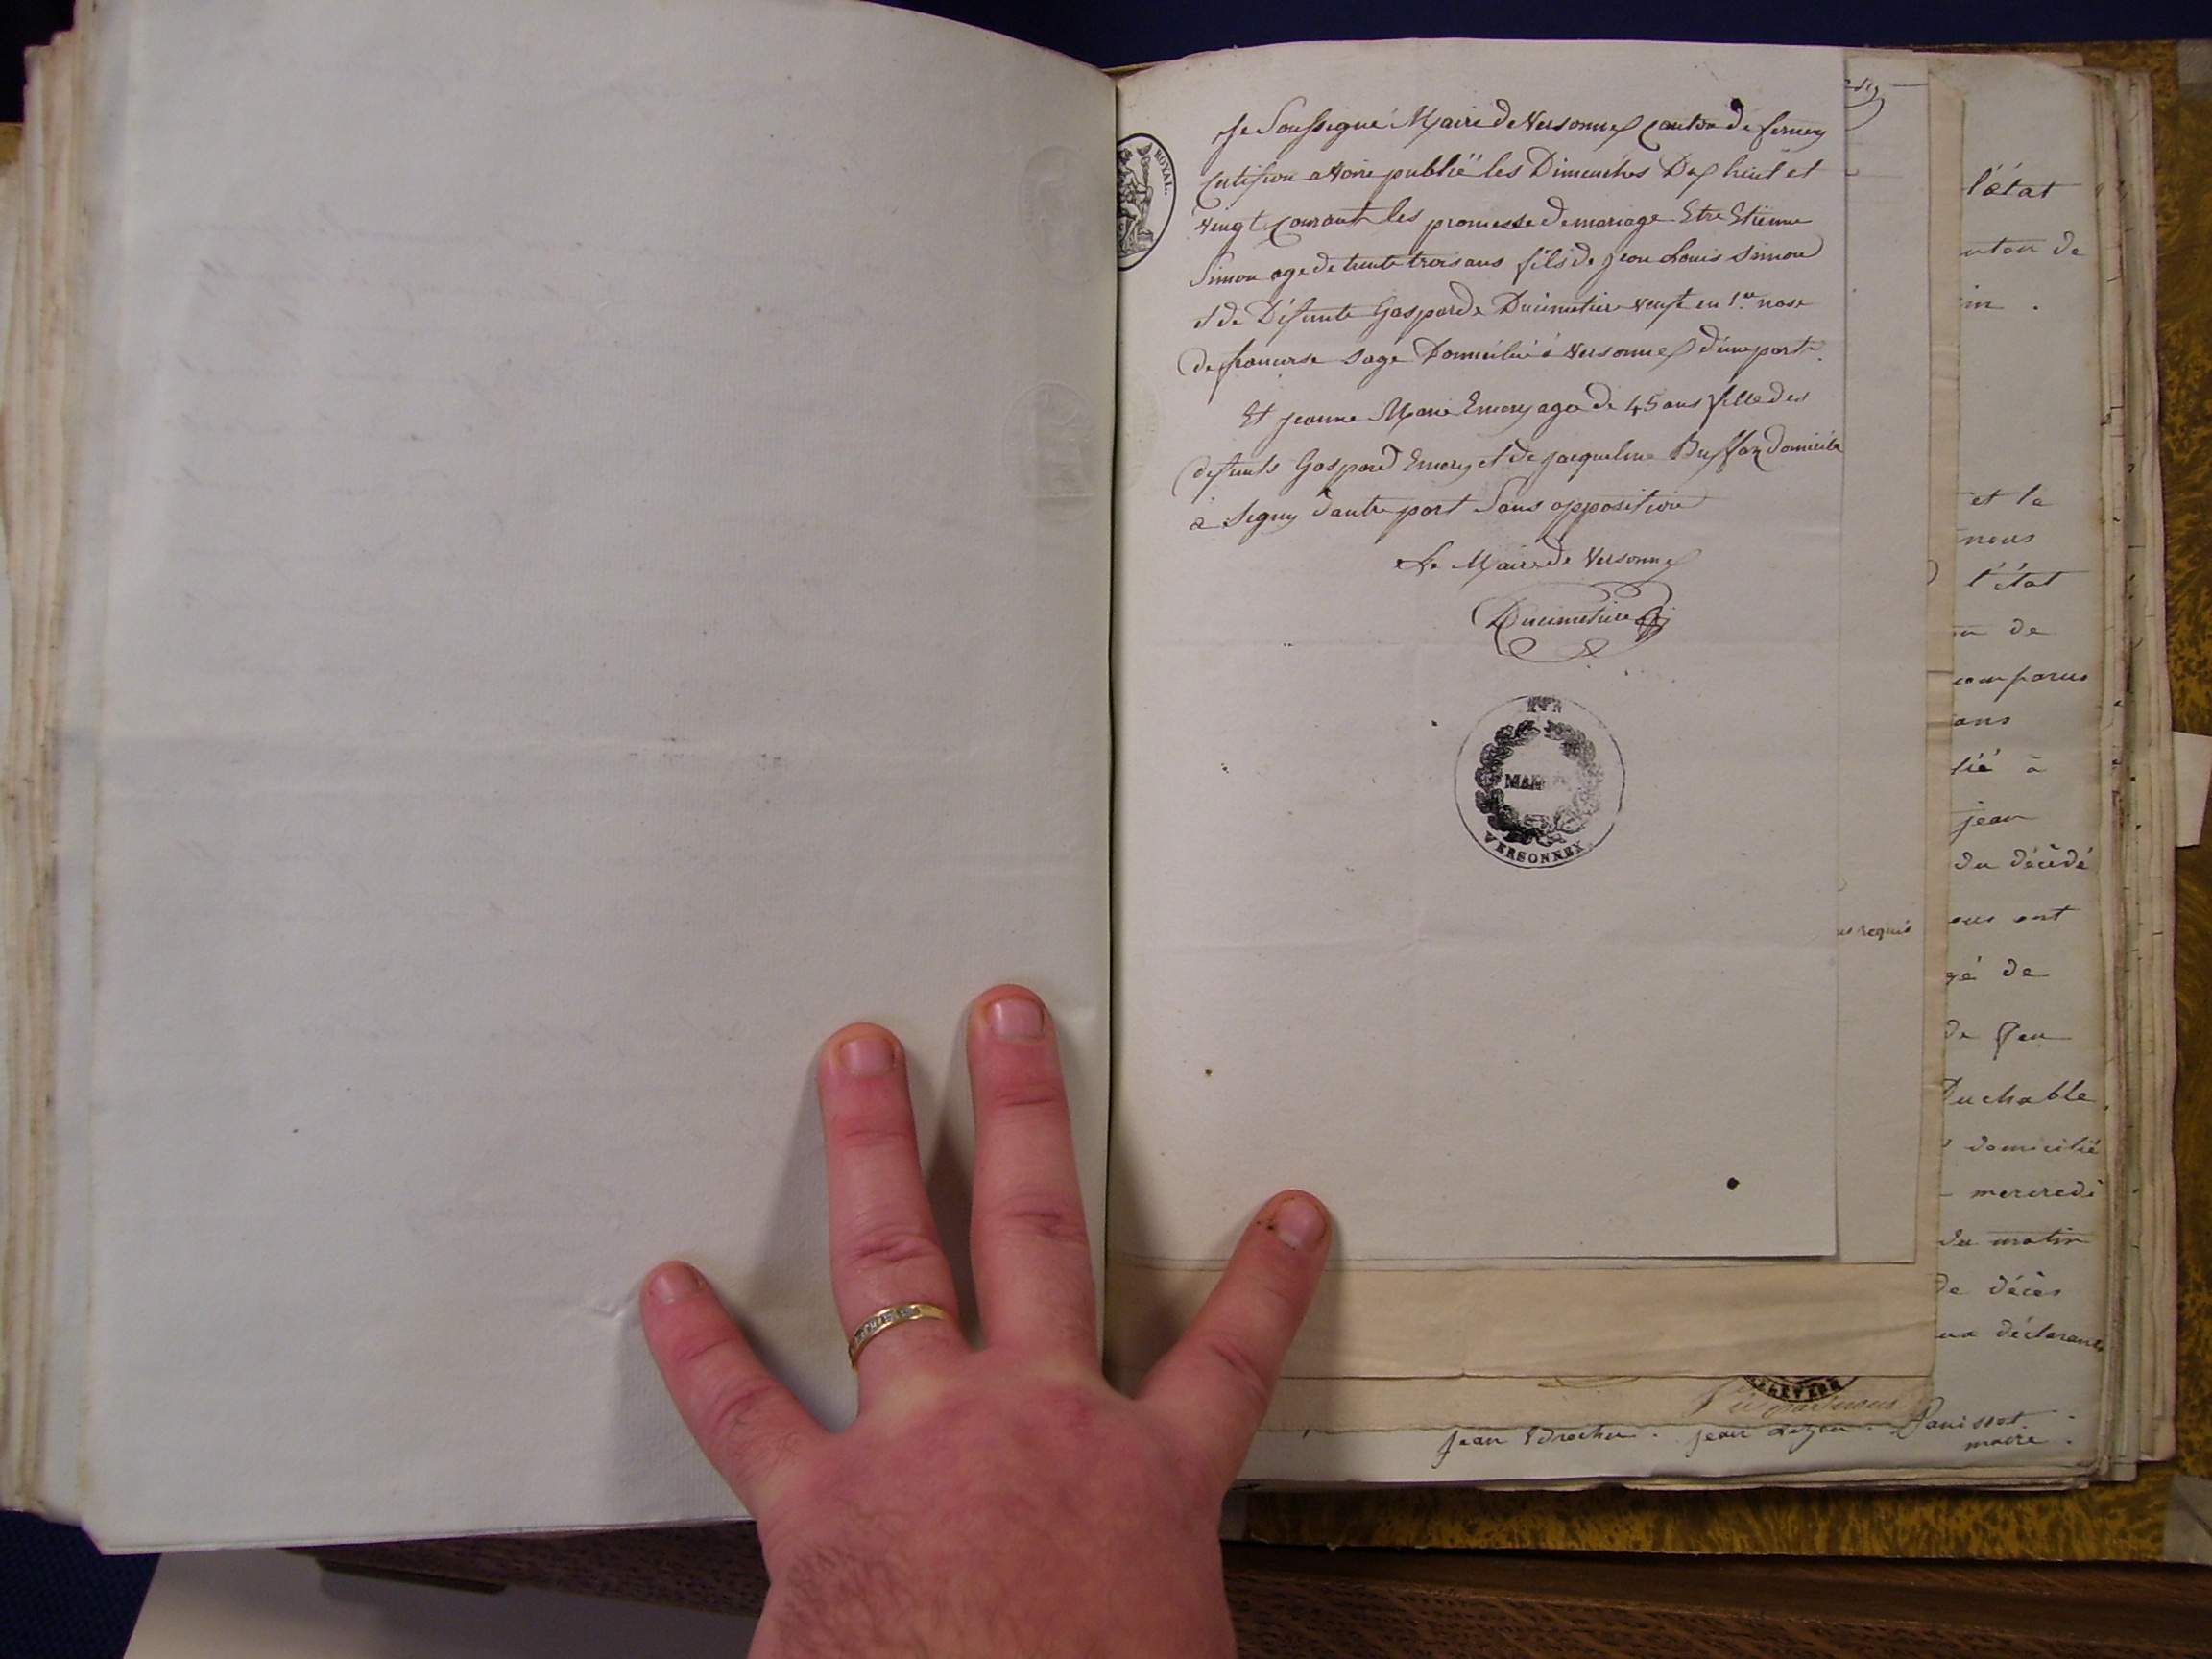 ROYAL.
Je Soussigné Maire de Versonnex Canton de ferney
Certifion avoire publië les Dimenches Dix huit et
vingt courant les promesse de mariage Etre Etienne
Simon age de trente trois ans fils de Jean Louis Simon
et de Défunte Gasparde Ducimetier veuf en 1er nose
de francoise Sage Domicilié à Versonnex d'une part.
Et jeanne Marie Emery agee de 45 ans fille des
defunts Gaspard Emery et de jacqueline Buffaz domicilie
a Segny dautre part Sans opposition
Le Maire de Versonnex
Ducimetiere
MAIRIE
VERSONNEX
us requis
l'état
nton de
in .
et la
nous
l'état
de
comparus
ans
lié à
jean
du décédé
ous ont
gé de
de feu
Duchable
domicilié
mercredi
du matin
de décès
ux déclarants
jean . jean . Panissot
maire .